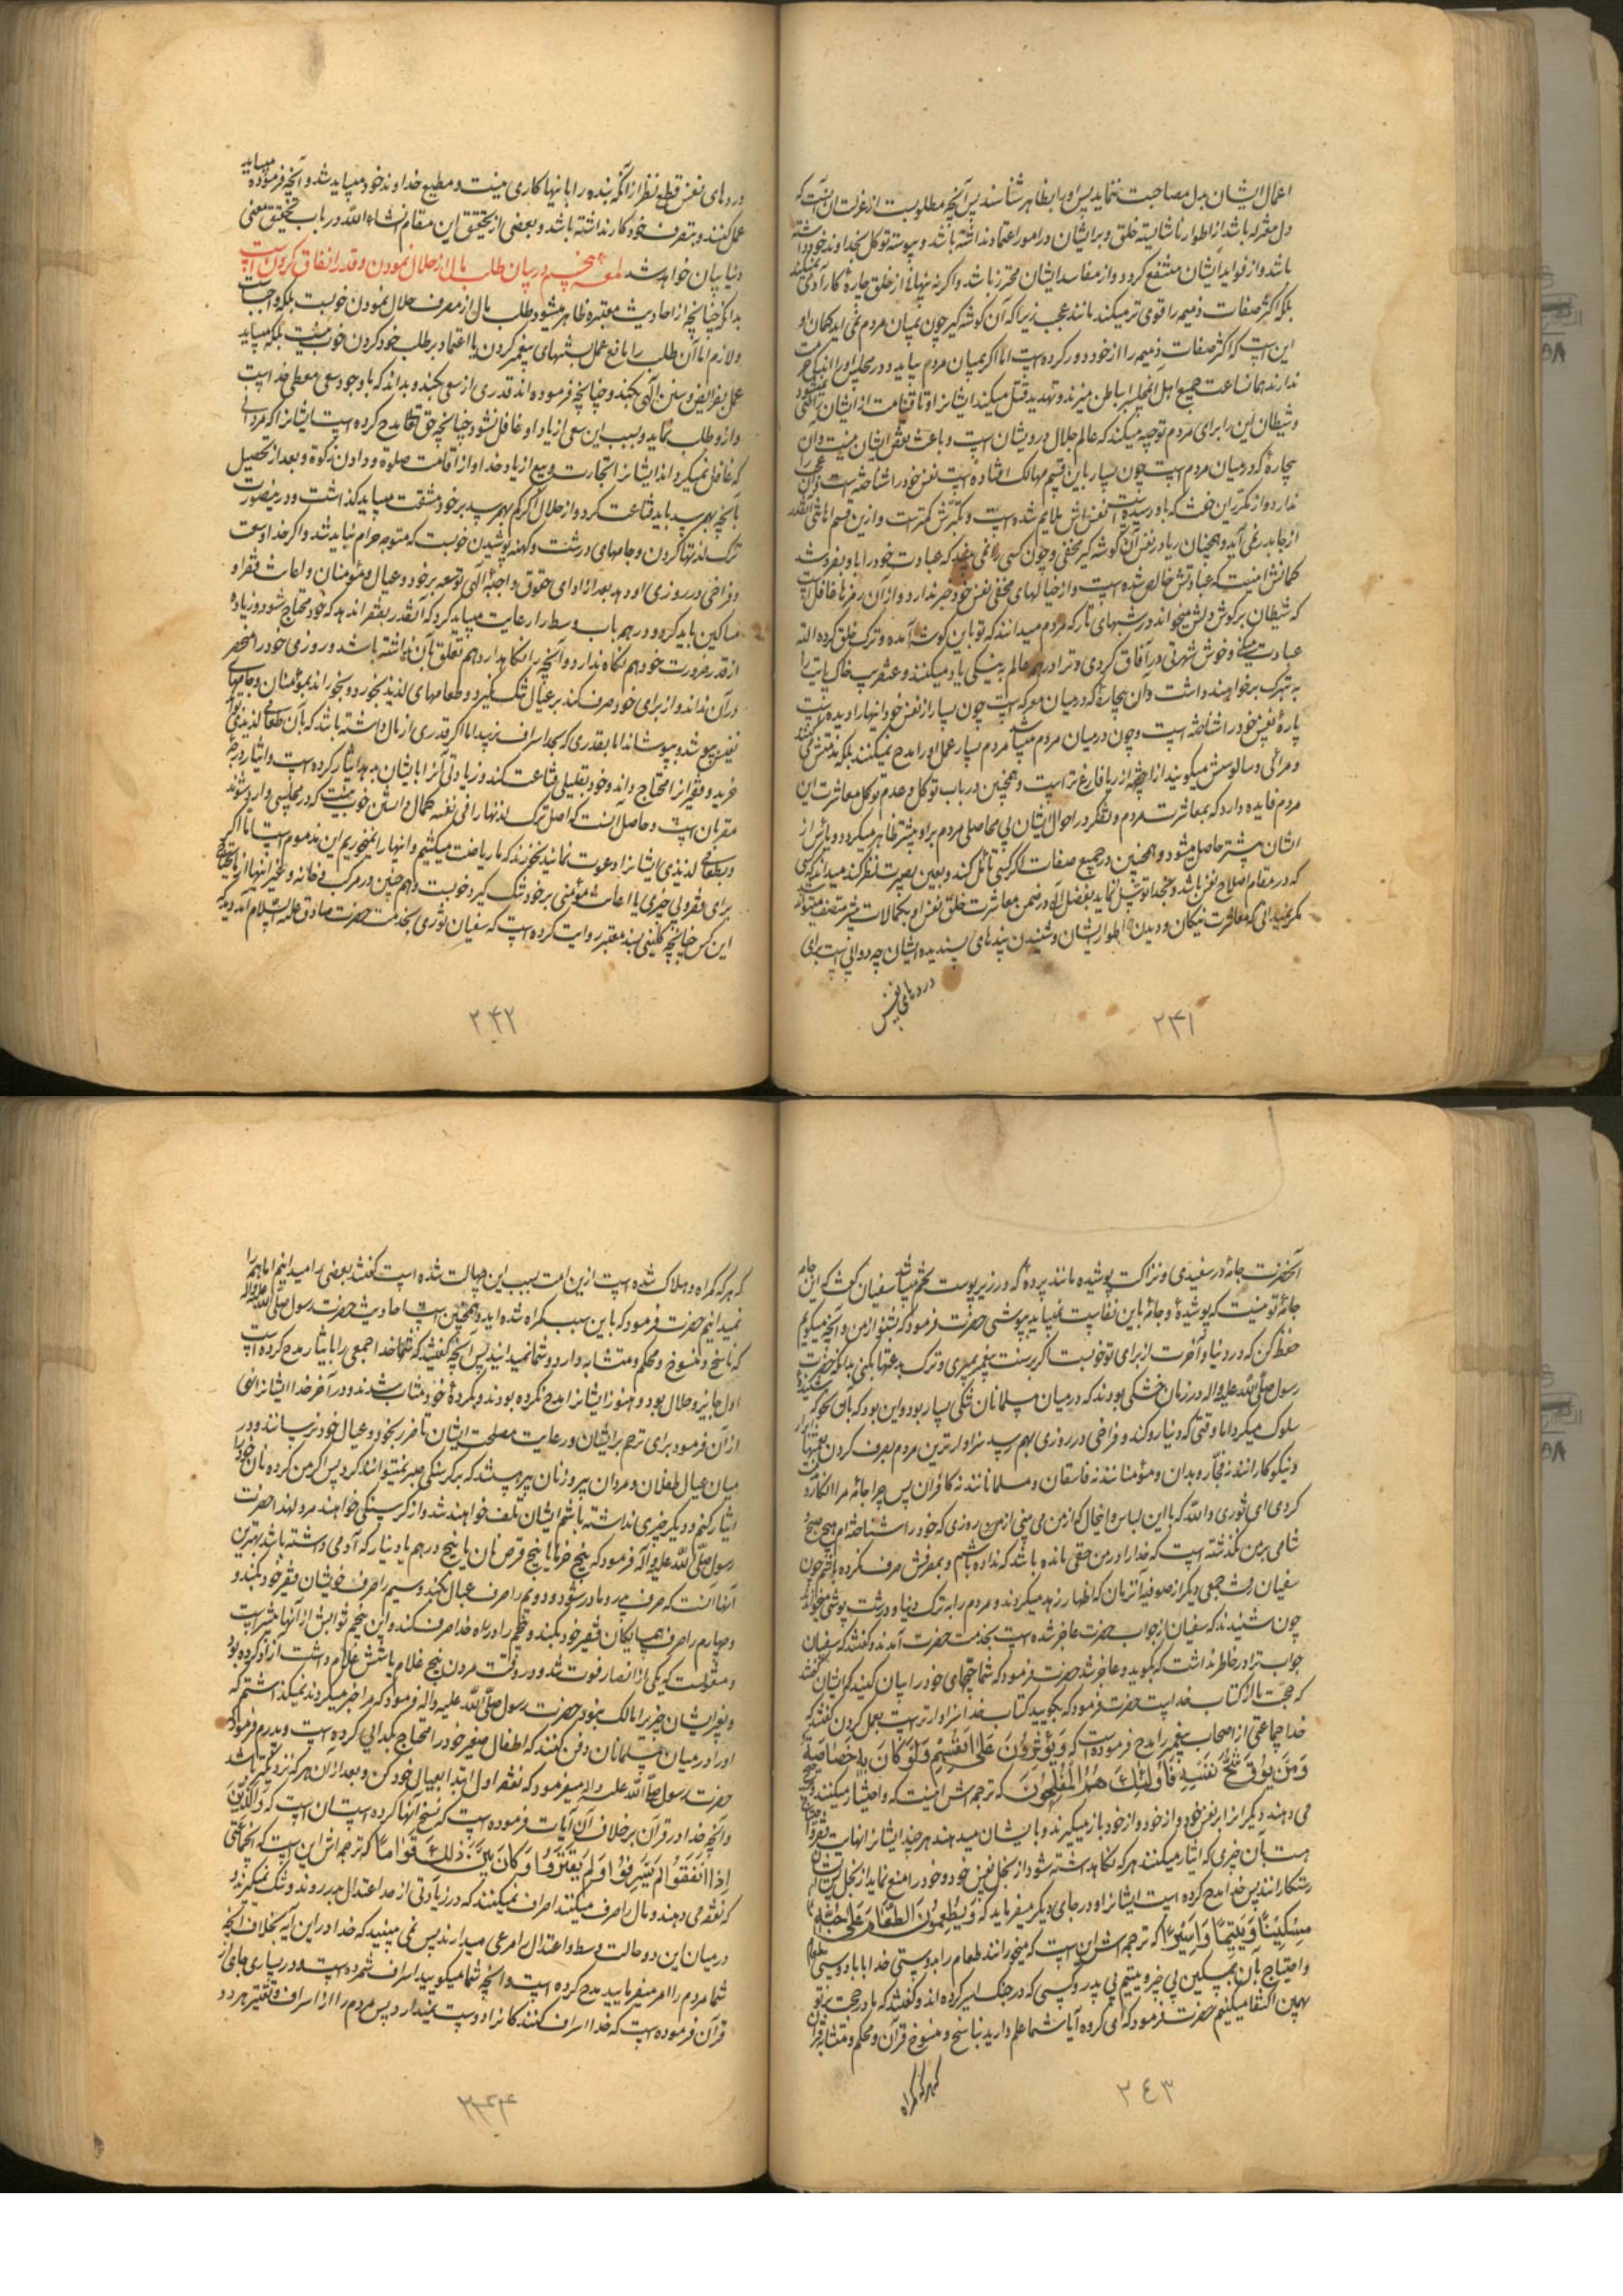 اعمال ایشان بدل مصاحبت ننماید پس او را بظاهر شناسند پس آنچه مطلوبست از عزلت آن است که
دل معتزل باشد از اطوار ناشایسته خلق و بر ایشان در امور اعتماد نداشته باشد و پیوسته توکل بخداوند خود داشته
باشد و از فواید ایشان منتفع گردد و از مفاسد ایشان محترز باشد و اگر نه پنهانی از خلق چاره کار آدمی نمیکند
بلکه اکثر صفات ذمیمه را قوی‌تر میکند مانند عجب زیرا که آن گوشه گیر چون بمیان مردم نمی آید گمان او
این است که اکثر صفات ذمیمه را از خود دور کرده است اما اگر بمیان مردم بیاید و در مجلسی او را اندکی حرمت
ندارند همان ساعت جمیع اهل آن مجلس را بباطن میزند و تهدید قتل میکند ایشانرا و تا قیامت از ایشان راضی نمیشود
و شیطان این را برای مردم توجیه میکند که عالم جلال درویشان است و باعث نقص ایشان نیست و آن
بیچاره که در میان مردم است چون بسیار باین قسم مهالک افتاده است نفس خود را شناخته است و آن عجب را
ندارد و از تکرر این خفت که باو رسیده است نفس اش ملایم شده است و تکبرش کمتر است و ازین قسم اهانتی آنقدر
از جا بدر نمی آید و همچنان ریا در نفس آن گوشه گیر مخفی و چون کسی را نمی بیند که عبادت خود را باو بفروشد
گمانش اینست که عبادتش خالص شده است و از خیالهای مخفی نفس خود خبر ندارد و از آن رمزها غافل است
که شیطان بر گوش دلش میخواند در شبهای تار که مردم میدانند که تو باین گوشه آمده و ترک خلق کرده الله
عبادت میکنی و خوش شهرتی در آفاق کردی و ترا در همه عالم به نیکی یاد میکنند و عنقریب خاک پایت را
به تبرک برخواهند داشت و آن بیچاره که در میان معرکه است چون بسیار از نفس خود اینها را دیده است
پاره نفس خود را شناخته است و چون در میان مردم میباشد مردم بسیار عمل او را مدح نمیکنند بلکه مذمتش میکنند
و مرائی و سالوسش میگویند از اینجهة از ریا فارغ‌تر است و همچنین در باب توکل و عدم توکل معاشرت این
مردم فایده دارد که بمعاشرت مردم و تفکر در احوال ایشان بی حاصلی مردم بر او بیشتر ظاهر میگردد و یاس از
ایشان بیشتر حاصل میشود و همچنین در جمیع صفات اگر کسی تأمل کند و بعین بصیرت نظر کند میداند کسی
که در مقام اصلاح نفس باشد و بخدا توسل نماید بفضل الهی در ضمن معاشرت خلق نفس او بکمالات بیشتر متصف میتواند شد
مگر نمیدانی که معاشرت نیکان و دیدن اطوار ایشان و شنیدن پندهای پسندیده ایشان چه دوائی است برای
دردهای نفس
۲۴۱
دردهای نفس قطع نظر از آنکه بنده را باینها کاری نیست و مطیع خداوند خود میباید شد و آنچه فرموده میباید
عمل کنند و بتصرف خود کار نداشته باشد و بعضی از تحقیق این مقام انشاء الله در باب تحقیق معنی
دنیا بیان خواهد شد لمعه پنجم در بیان طلب مال از حلال نمودن و قدر انفاق کردن است
بدانکه چنانچه از احادیث معتبره ظاهر میشود طلب مال از مصرف حلال نمودن خوبست بلکه واجبست
ولازم اما آن طلب را مانع عمل بسنتهای پیغمبر کردن یا اعتماد بر طلب خود کردن خوب نیست بلکه میباید
عمل بفرایض و سنن الهی بکند و چنانچه فرموده اند قدری از سعی بکند و بداند که با وجود سعی معطی خداست
و ازو طلب نماید و بسبب این سعی از یاد او غافل نشود چنانچه حق تعالی مدح کرده است ایشانرا که مردانی
که غافل نمیگرداند ایشانرا تجارت و بیع از یاد خدا و از اقامت صلوة و دادن زکوة و بعد از تحصیل
بآنچه بهم رسید باید قناعت کرد و از حلال اگر کم بهم رسید بر خود مشقت میباید گذاشت و در اینصورت
ترک لذتها کردن و جامهای درشت و کهنه پوشیدن خوبست که متوجه حرام نباید شد و اگر خدا وسعت
و فراخی در روزی او دهد بعد از ادای حقوق واجبه الهی توسعه بر خود و عیال و مؤمنان و اعانت فقرا و
مساکین باید کرد و در هر باب وسط را رعایت میباید کرد که آنقدر بفقرا ندهد که خود محتاج شود و زیاده
از قدر ضرورت خود هم نگاه ندارد و آنچه را نگاهدارد هم تعلق بآن نداشته باشد و روزی خود را منحصر
در آن نداند و از برای خود صرف کند بر عیال تنگ نگیرد و طعامهای لذیذ بخورد و بخوراند بمؤمنان و جامهای
نفیس بپوشد و بپوشاند اما بقدری که بحد اسراف نرسد اما اگر قدری از مال داشته باشد که بآن طعامی لذیذ تواند
خرید و فقیر را محتاج داند و خود بقلیلی قناعت کند و زیادتی آنرا بایشان بدهد ایثار کرده است و ایثار درجه
مقربان است و حاصل آنست که اصل ترک لذتها را فی نفسه کمال دانستن خوب نیست که در مجلسی وارد شوند
و بطعام لذیذی ایشانرا دعوت نمایند بخورند که ما ریاضت میکشیم و اینها را نمیخوریم این مذموم است اما اگر
برای فقر و بی چیزی یا اعانت مؤمنی بر خود تنگ گیرد خوبست و همچنین در مرکب و خانه و غیر اینها از مایحتاج
این کس چنانچه کلینی بسند معتبر روایت کرده است که سفیان ثوری بخدمت حضرت صادق علیه السلام آمد دید که
۲۴۲
آنحضرت جامه در سفیدی و نزاکت پوشیده مانند پرده که در زیر پوست تخم میباشد سفیان گفت که این جامه
جامه تو نیست که پوشیدۀ و جامه باین نفاست نمیباید بپوشی حضرت فرمود که بشنو از من و آنچه میگویم
حفظ کن که در دنیا و آخرت از برای تو خوبست اگر بر سنت پیغمبر بمیری و ترک بدعتها بکنی بدانکه حضرت
رسول صلی الله علیه واله در زمان خشکی بودند که در میان مسلمانان تنگی بسیار بود و این بود که باین نحو که شنیدۀ
سلوک میکرد اما وقتی که دنیا رو کند و فراخی در روزی بهم رسید سزاوارترین مردم بصرف کردن نعمتها ابرار
و نیکوکارانند نه فجار و بدان و مؤمنانند نه فاسقان و مسلمانانند نه کافران پس چرا جامه مرا انکار
کردی ای ثوری والله که با این لباس و اینحال که از من می بینی از من روزی که خود را شناخته ام هیچ صبح
و شامی بر من نگذشته است که خدا را در من حقی مانده باشد که نداده باشم و بمصرفش صرف نکرده باشم چون
سفیان رفت جمعی دیگر از صوفیه آنزمان که اظهار زهد میکردند و مردم را به ترک دنیا و درشت پوشی میخواندند
چون شنیدند که سفیان از جواب حضرت عاجز شده است بخدمت حضرت آمدند و گفتند که سفیان
جواب ترا در خاطر نداشت که بگوید و عاجز شد حضرت فرمود که شما حجتهای خود را بیان کنید که ایشان گفتند
که حجت ما از کتاب خداست حضرت فرمود که بگویید کتاب خدا سزاوارتر است بعمل کردن گفتند که
خدا جماعتی از اصحاب پیغمبر را مدح فرموده است که وَیُؤْثِرُونَ عَلىٰ اَنْفُسِهِمْ وَلَوْ کَانَ بِهِمْ خَصَاصَةٌ
وَمَنْ یُوقَ شُحَّ نَفْسِهِ فَاُولٰئِكَ هُمُ الْمُفْلِحُونَ که ترجمه اش اینست که و اختیار میکنند و
می دهند دیگرانرا بر نفس خود و از خود باز میگیرند و بایشان میدهند هر چند ایشانرا نهایت فقر و احتیاج
هست بآن چیزی که ایثار میکنند هر که نگاهداشته شود از بخل نفس خود و خود را منع نماید از بخل پس ایشان
رستگارانند پس خدا مدح کرده است ایشانرا و در جای دیگر میفرماید که وَیُطْعِمُونَ الطَّعَامَ عَلىٰ حُبِّهِ
مِسْکِینًا وَیَتِیمًا وَاَسِیرًا که ترجمه اش این است که میخورانند طعام را بدوستی خدا یا با دوستی طعام
و احتیاج بآن بمسکین بی چیز و یتیم بی پدر و کسی که در جنگ اسیر کرده اند و گفتند که ما در حجت بر تو
بهمین اکتفا میکنیم حضرت فرمود که ای گروه آیا شما علم دارید بناسخ و منسوخ قرآن و محکم و متشابه قرآن
که هر که گمراه
۲٤۳
که هر که گمراه و هلاک شده است ازین امت بسبب این جهالت شده است گفتند بعضی را میدانیم اما همه را
نمیدانیم حضرت فرمود که باین سبب گمراه شده اید و همچنین است احادیث حضرت رسول صلی الله علیه واله
که ناسخ و منسوخ و محکم و متشابه دارد و شما نمیدانید پس آنچه گفتید که خدا جمعی را بایثار مدح کرده است
اول جایز و حلال بود و هنوز ایشانرا مدح نکرده بودند و بکردۀ خود مثاب شدند و در آخر خدا ایشانرا نهی
از آن فرمود برای ترحم بر ایشان و رعایت مصلحت ایشان تا ضرر بخود و عیال خود نرسانند و در
میان عیال طفلان و مردان پیر و زنان پیر میباشد که بر گرسنگی صبر نمیتوانند کرد پس اگر من گرده نان خود را
ایثار کنم و دیگر چیزی نداشته باشم ایشان تلف خواهند شد و از گرسنگی خواهند مرد لهذا حضرت
رسول صلی الله علیه وآله فرمود که پنج خرما یا پنج قرص نان یا پنج درهم یا دینار که آدمی داشته باشد بهترین
آنها آنست که صرف پدر و مادر شود و دویم را صرف عیال بکند و سیم را صرف خویشان فقیر خود بکند و
چهارم را صرف همسایگان فقیر خود بکند و پنجم را در راه خدا صرف کند و این پنجم ثوابش از آنها کمتر است
و منقولست که یکی از انصار فوت شد و در وقت مردن پنج غلام یا شش غلام داشت آزاد کرده بود
و بغیر ایشان چیزی را مالک نبود حضرت رسول صلی الله علیه واله فرمود که مرا خبر میکردند نمیگذاشتم که
او را در میان مسلمانان دفن کنند که اطفال صغیر خود را محتاج بگدایی کرده است و پدرم فرمود که
حضرت رسول صلی الله علیه واله میفرمود که نفقه اول ابتدا بعیال خود کن و بعد از آن هر که نزدیکتر باشد
و آنچه خدا در قرآن بر خلاف آن آیات فرموده است که نسخ آنها کرده است آن است که وَالَّذِینَ
اِذَا اَنْفَقُوا لَمْ یُسْرِفُوا وَلَمْ یَقْتُرُوا وَکَانَ بَیْنَ ذٰلِكَ قَوَامًا که ترجمه اش این است که آنجماعتی
که نفقه می دهند و مال را صرف میکنند اسراف نمیکنند که در زیادتی از حد اعتدال بدر روند و تنگ نمیگیرند و
در میان این دو حالت وسط و اعتدال را مرعی میدارند پس نمی بینید که خدا در این آیه بخلاف آنچه
شما مردم را امر میفرمایید مدح کرده است و آنچه شما میگویید اسراف شمرده است و در بسیاری جای از
قرآن فرموده است که خدا اسراف کنندگانرا دوست نمیدارد پس مردم را از اسراف و تقتیر هر دو
۲۴۴